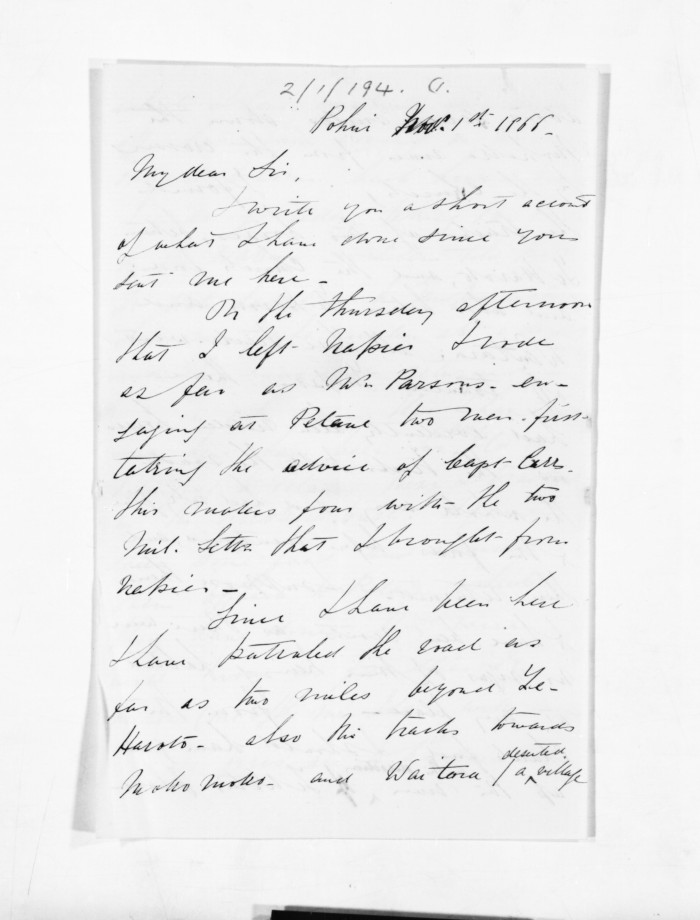 2/1/194. O.
Pohui Nov. 1st 1866.
My dear Sir,
I write you a short account
of what I have done since you
sent me here -
On the Thursday afternoon
that I left Napier I rode
as far as Mr. Parsons - en-
gaging at Petane two men - first
taking the advice of Capt. Carr.
this makes four with the two
Mil. Settrs that I brought from
Napier -
Since I have been here
I have patroled the road as
far as two miles beyond Te-
Haroto - also the tracks towards
Moko moko - and Waitara (a deserted village